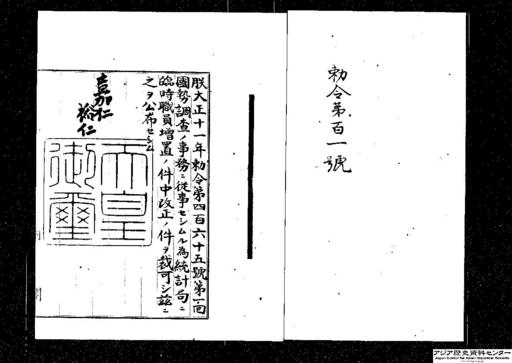 勅令第百一號
朕大正十一年勅令第四百六十五號第一回
國勢調査ノ事務ニ從事セシムル為統計局ニ
臨時職員増置ノ件中改正ノ件ヲ裁可シ茲ニ
之ヲ公布セシム
嘉仁
裕仁
天皇
御璽
アジア歴史資料センター
Japan Center for Asian Historical Records